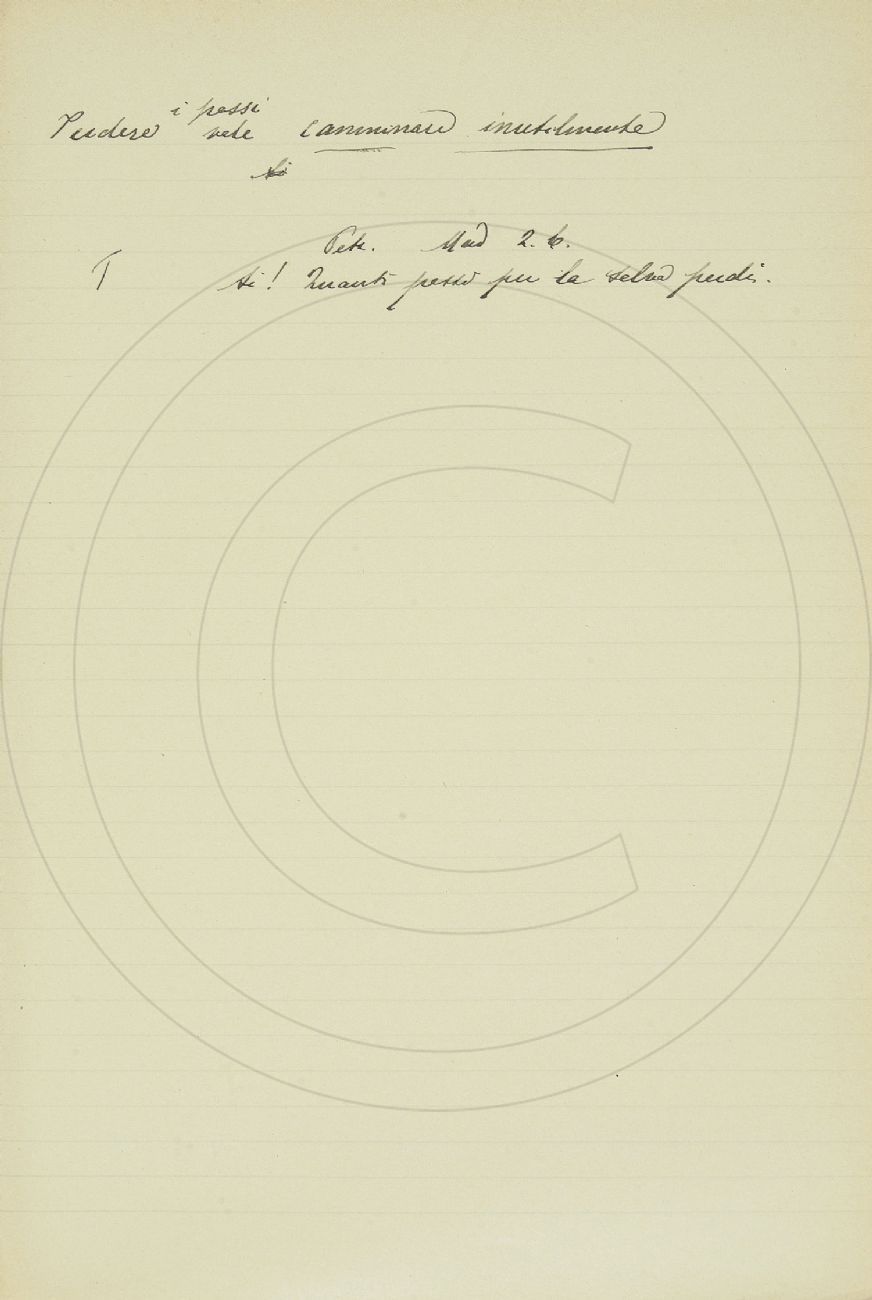 i passi
Perdere vale camminare inutilmente
Si
Petr. Mad 2. 6.
T Ai! Quanti passi per la selva perdi.